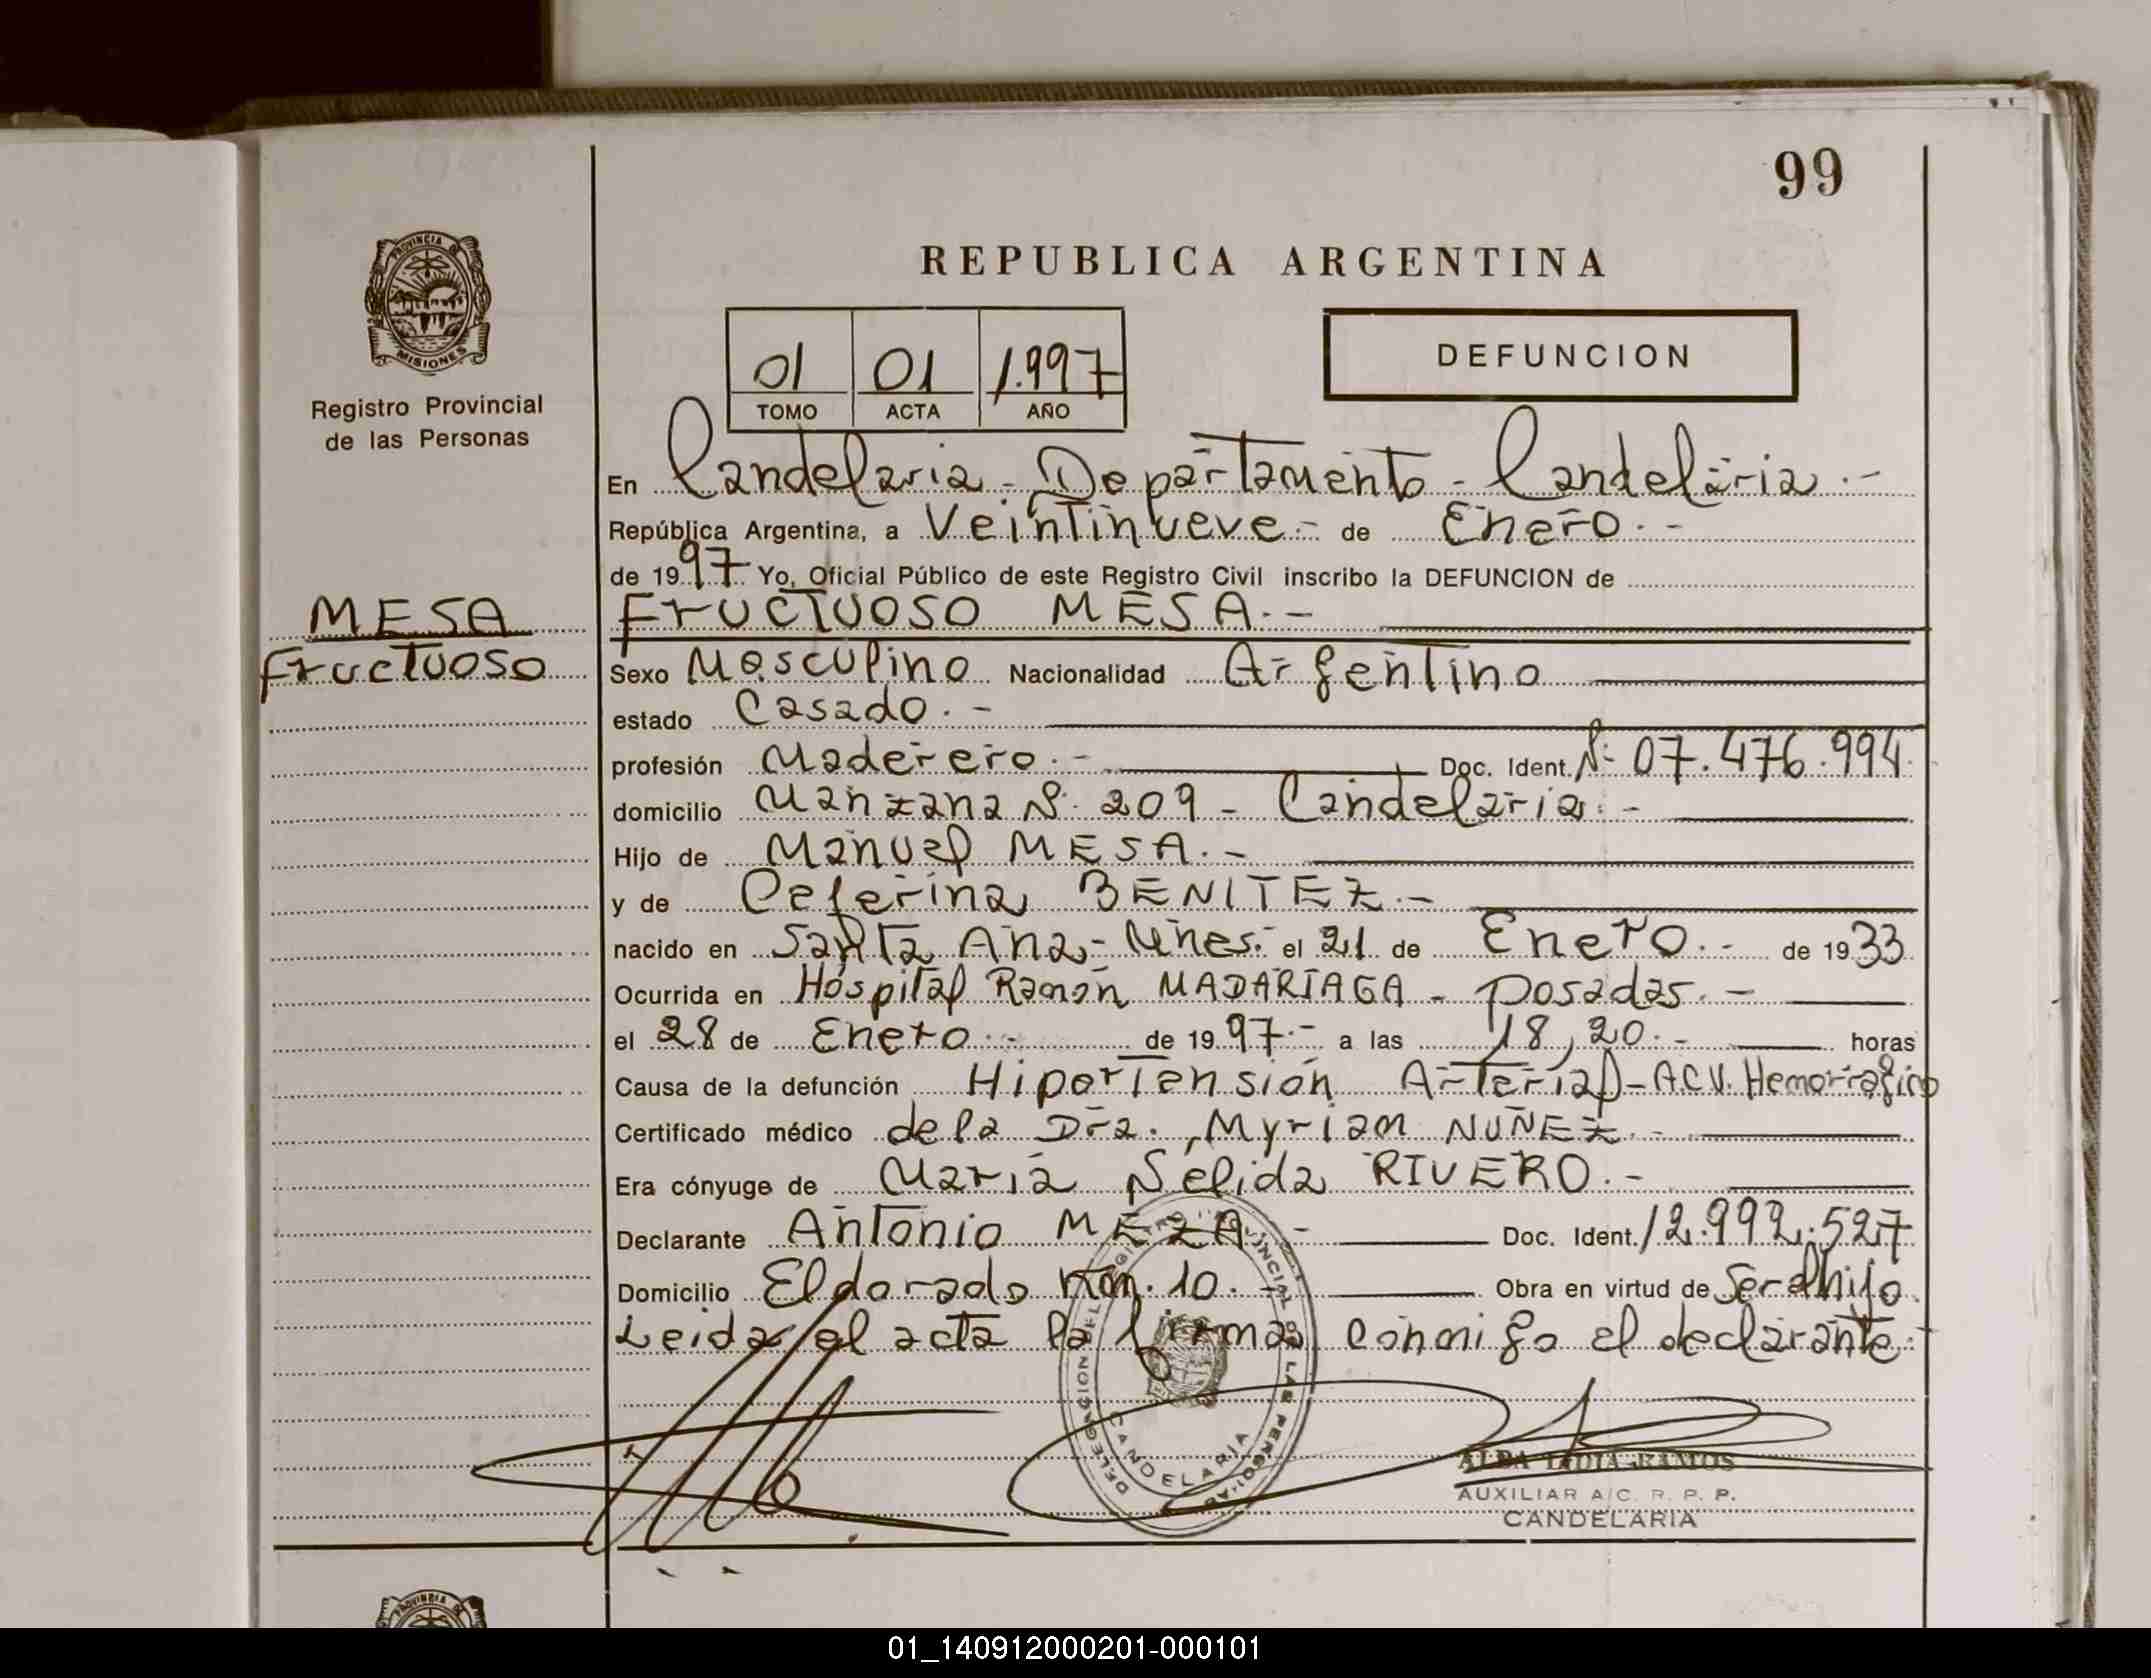 99
PROVINCIA DE
MISIONES
Registro Provincial
de las Personas
REPUBLICA ARGENTINA
01 01 1.997
TOMO ACTA AÑO
DEFUNCION
En Candelaria - Departamento - Candelaria .-
República Argentina, a Veintinueve.- de Enero.-
de 1997 Yo, Oficial Público de este Registro Civil inscribo la DEFUNCION de
MESA
Fructuoso
Fructuoso MESA.-
Sexo Masculino Nacionalidad Argentino
estado Casado.-
profesión Maderero.- Doc. Ident. Nº 07.476.994
domicilio Manzana Nº 209 - Candelaria.-
Hijo de Manuel MESA.-
y de Ceferina BENITEZ.-
nacido en Santa Ana - Mnes. el 21 de Enero.- de 1933
Ocurrida en Hospital Ramón MADARIAGA - Posadas.-
el 28 de Enero.- de 1997.- a las 18,20.- horas
Causa de la defunción Hipertensión Arterial - A.C.V. Hemorragico
Certificado médico de la Dra. Myriam NUÑEZ.-
Era cónyuge de María Nélida RIVERO.-
Declarante Antonio MEZA.- Doc. Ident. 12.992.527
Domicilio Eldorado Km. 10.- Obra en virtud de Ser el hijo
Leida el acta la firma conmigo el declarante.-
DELEGACION DEL REGISTRO PROVINCIAL DE LAS PERSONAS
CANDELARIA
ALBA LIDIA RAMOS
AUXILIAR A/C. R. P. P.
CANDELARIA
PROVINCIA DE
01_140912000201-000101